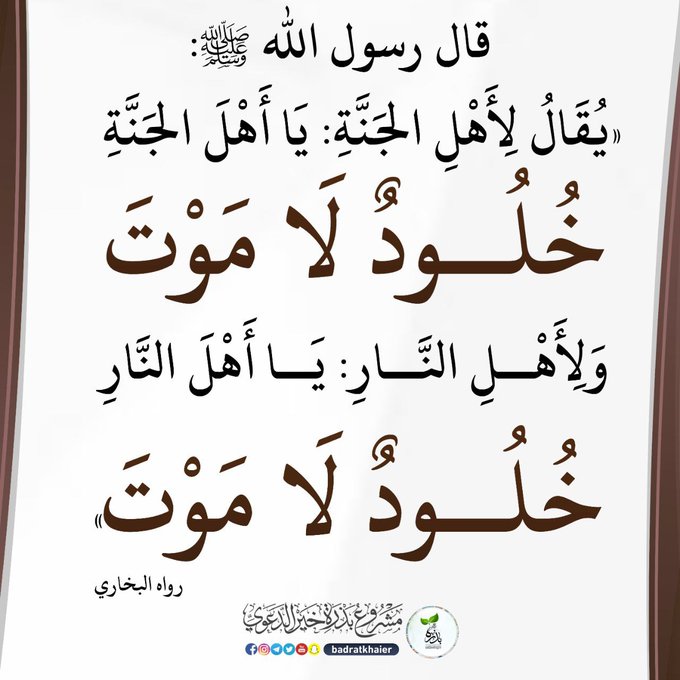 قال رسول الله ﷺ:
«يُقَالُ لِأَهْلِ الجَنَّةِ: يَا أَهْلَ الجَنَّةِ
خُلُـــودٌ لَا مَوْتَ
وَلِأَهْـــلِ النَّـــارِ: يَـــا أَهْلَ النَّارِ
خُلُـــودٌ لَا مَوْتَ»
رواه البخاري
مشروع بذرة خير الدعوي
بذرة
badratkhaier